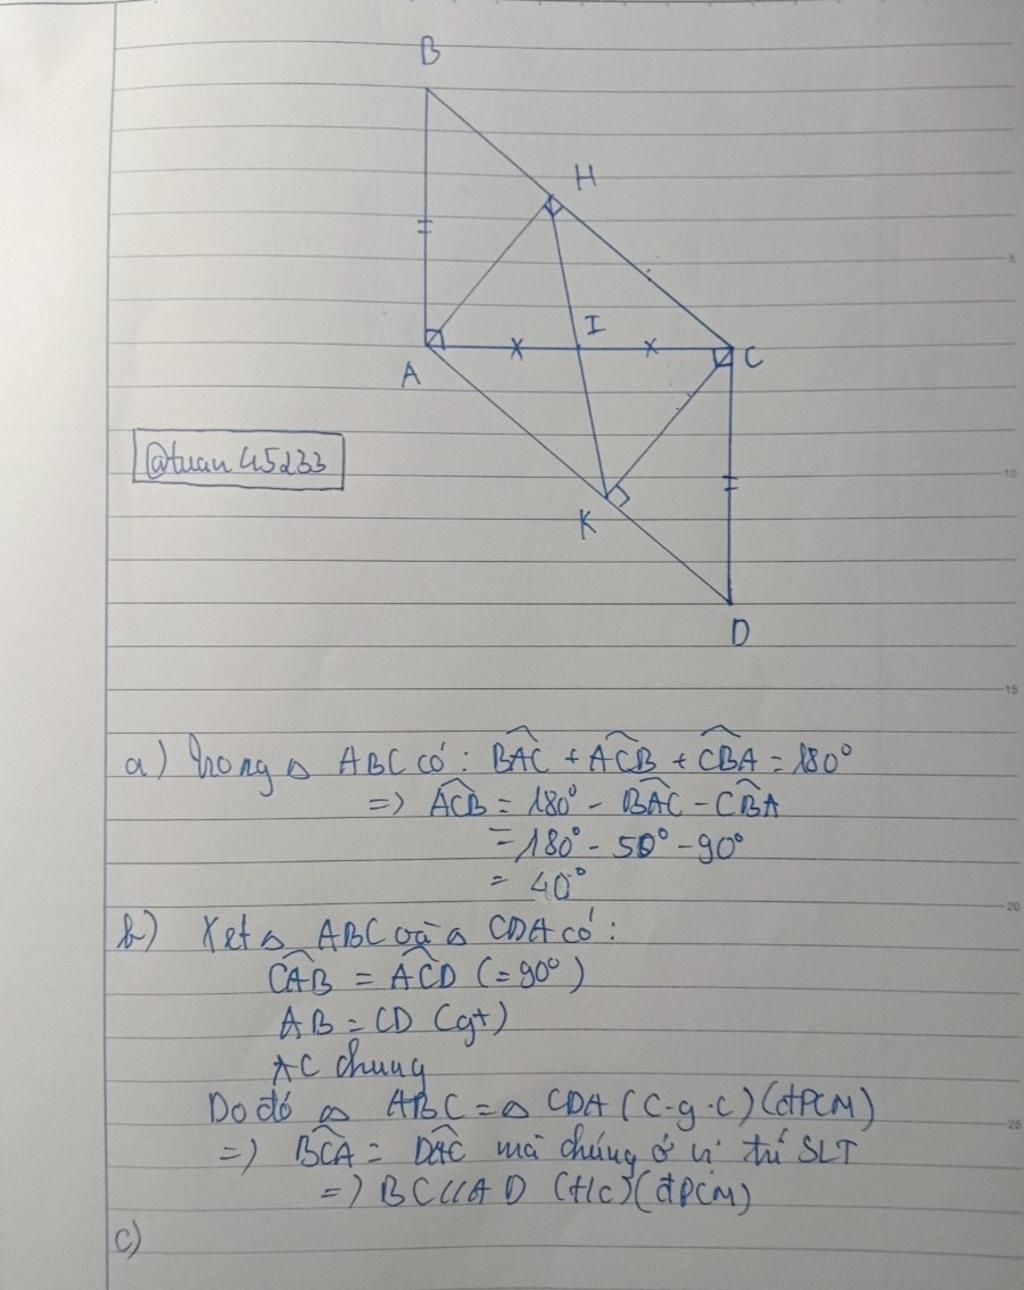 B
H
I
A
C
@tuan 45233
K
D
5
10
15
20
25
a) Trong △ ABC có: BAC + ACB + CBA = 180°
=> ACB = 180° - BAC - CBA
= 180° - 50° - 90°
= 40°
b) Xét △ ABC và △ CDA có:
CAB = ACD (= 90°)
AB = CD (gt)
AC chung
Do đó △ ABC = △ CDA (c-g.c) (đPCM)
=> BCA = DAC mà chúng ở vị trí SLT
=> BC // AD (t/c) (đPCM)
c)